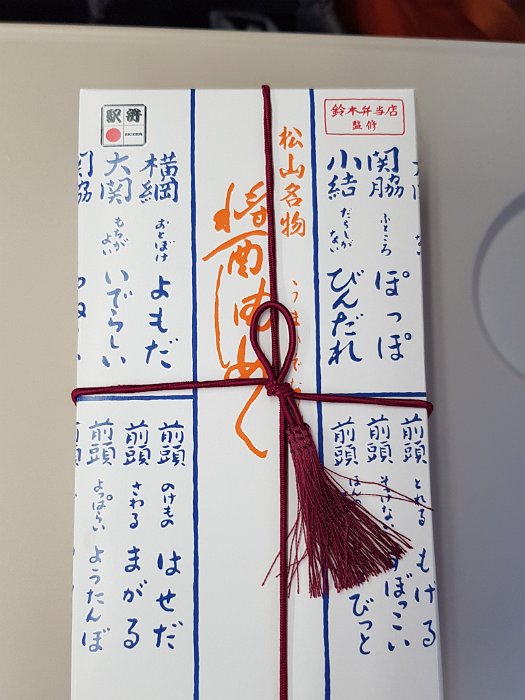 駅弁
鈴木弁当店
監修
関脇 ふところ ぽっぽ
小結 だらしがない びんだれ
松山名物
醤油めし
横綱 おとぼけ よもだ
大関 もちがよい いでらしい
関脇
前頭 とれる もげる
前頭 そっけない すぼっこい
前頭
前頭 のけもの はせだ
前頭 さわる まがる
前頭 よっぱらい ようたんぼ